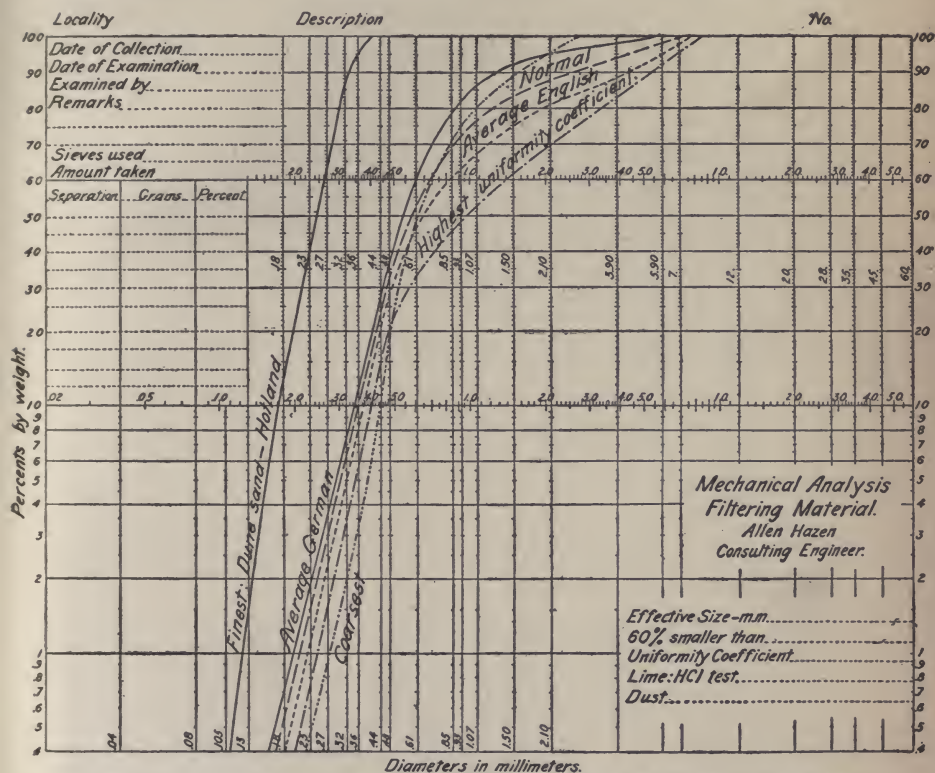 Locality Description No.
Date of Collection
Date of Examination
Examined by
Remarks
Sieves used
Amount taken
Separation Grams Percent
Percents by weight.
100
90
80
70
60
50
40
30
20
10
9
8
7
6
5
4
3
2
1
.9
.8
.7
.6
.5
.4
100
90
80
70
60
50
40
30
20
10
9
8
7
6
5
4
3
2
1
.9
.8
.7
.6
.5
.4
Normal
Average English
Highest uniformity coefficient.
Finest: Dune sand - Holland
Average German
Coarsest
.20 .30 .40 .50 1.0 2.0 3.0 4.0 5.0 10. 20. 30. 40. 50.
.18 .23 .27 .32 .36 .44 .48 .61 .85 .93 1.07 1.50 2.10 3.90 5.90 7. 12. 20. 28. 35. 45. 60.
.02 .05 .10 .20 .30 .40 .50 1.0 2.0 3.0 4.0 5.0 10. 20. 30. 40. 50.
Mechanical Analysis
Filtering Material.
Allen Hazen
Consulting Engineer.
Effective Size-mm.
60% smaller than
Uniformity Coefficient
Lime: HCl test
Dust
.04 .08 .105 .13 .23 .27 .32 .36 .44 .48 .61 .85 .93 1.07 1.50 2.10
Diameters in millimeters.